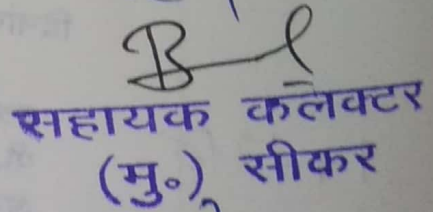 सहायक कलेक्टर
(मु०), सीकर